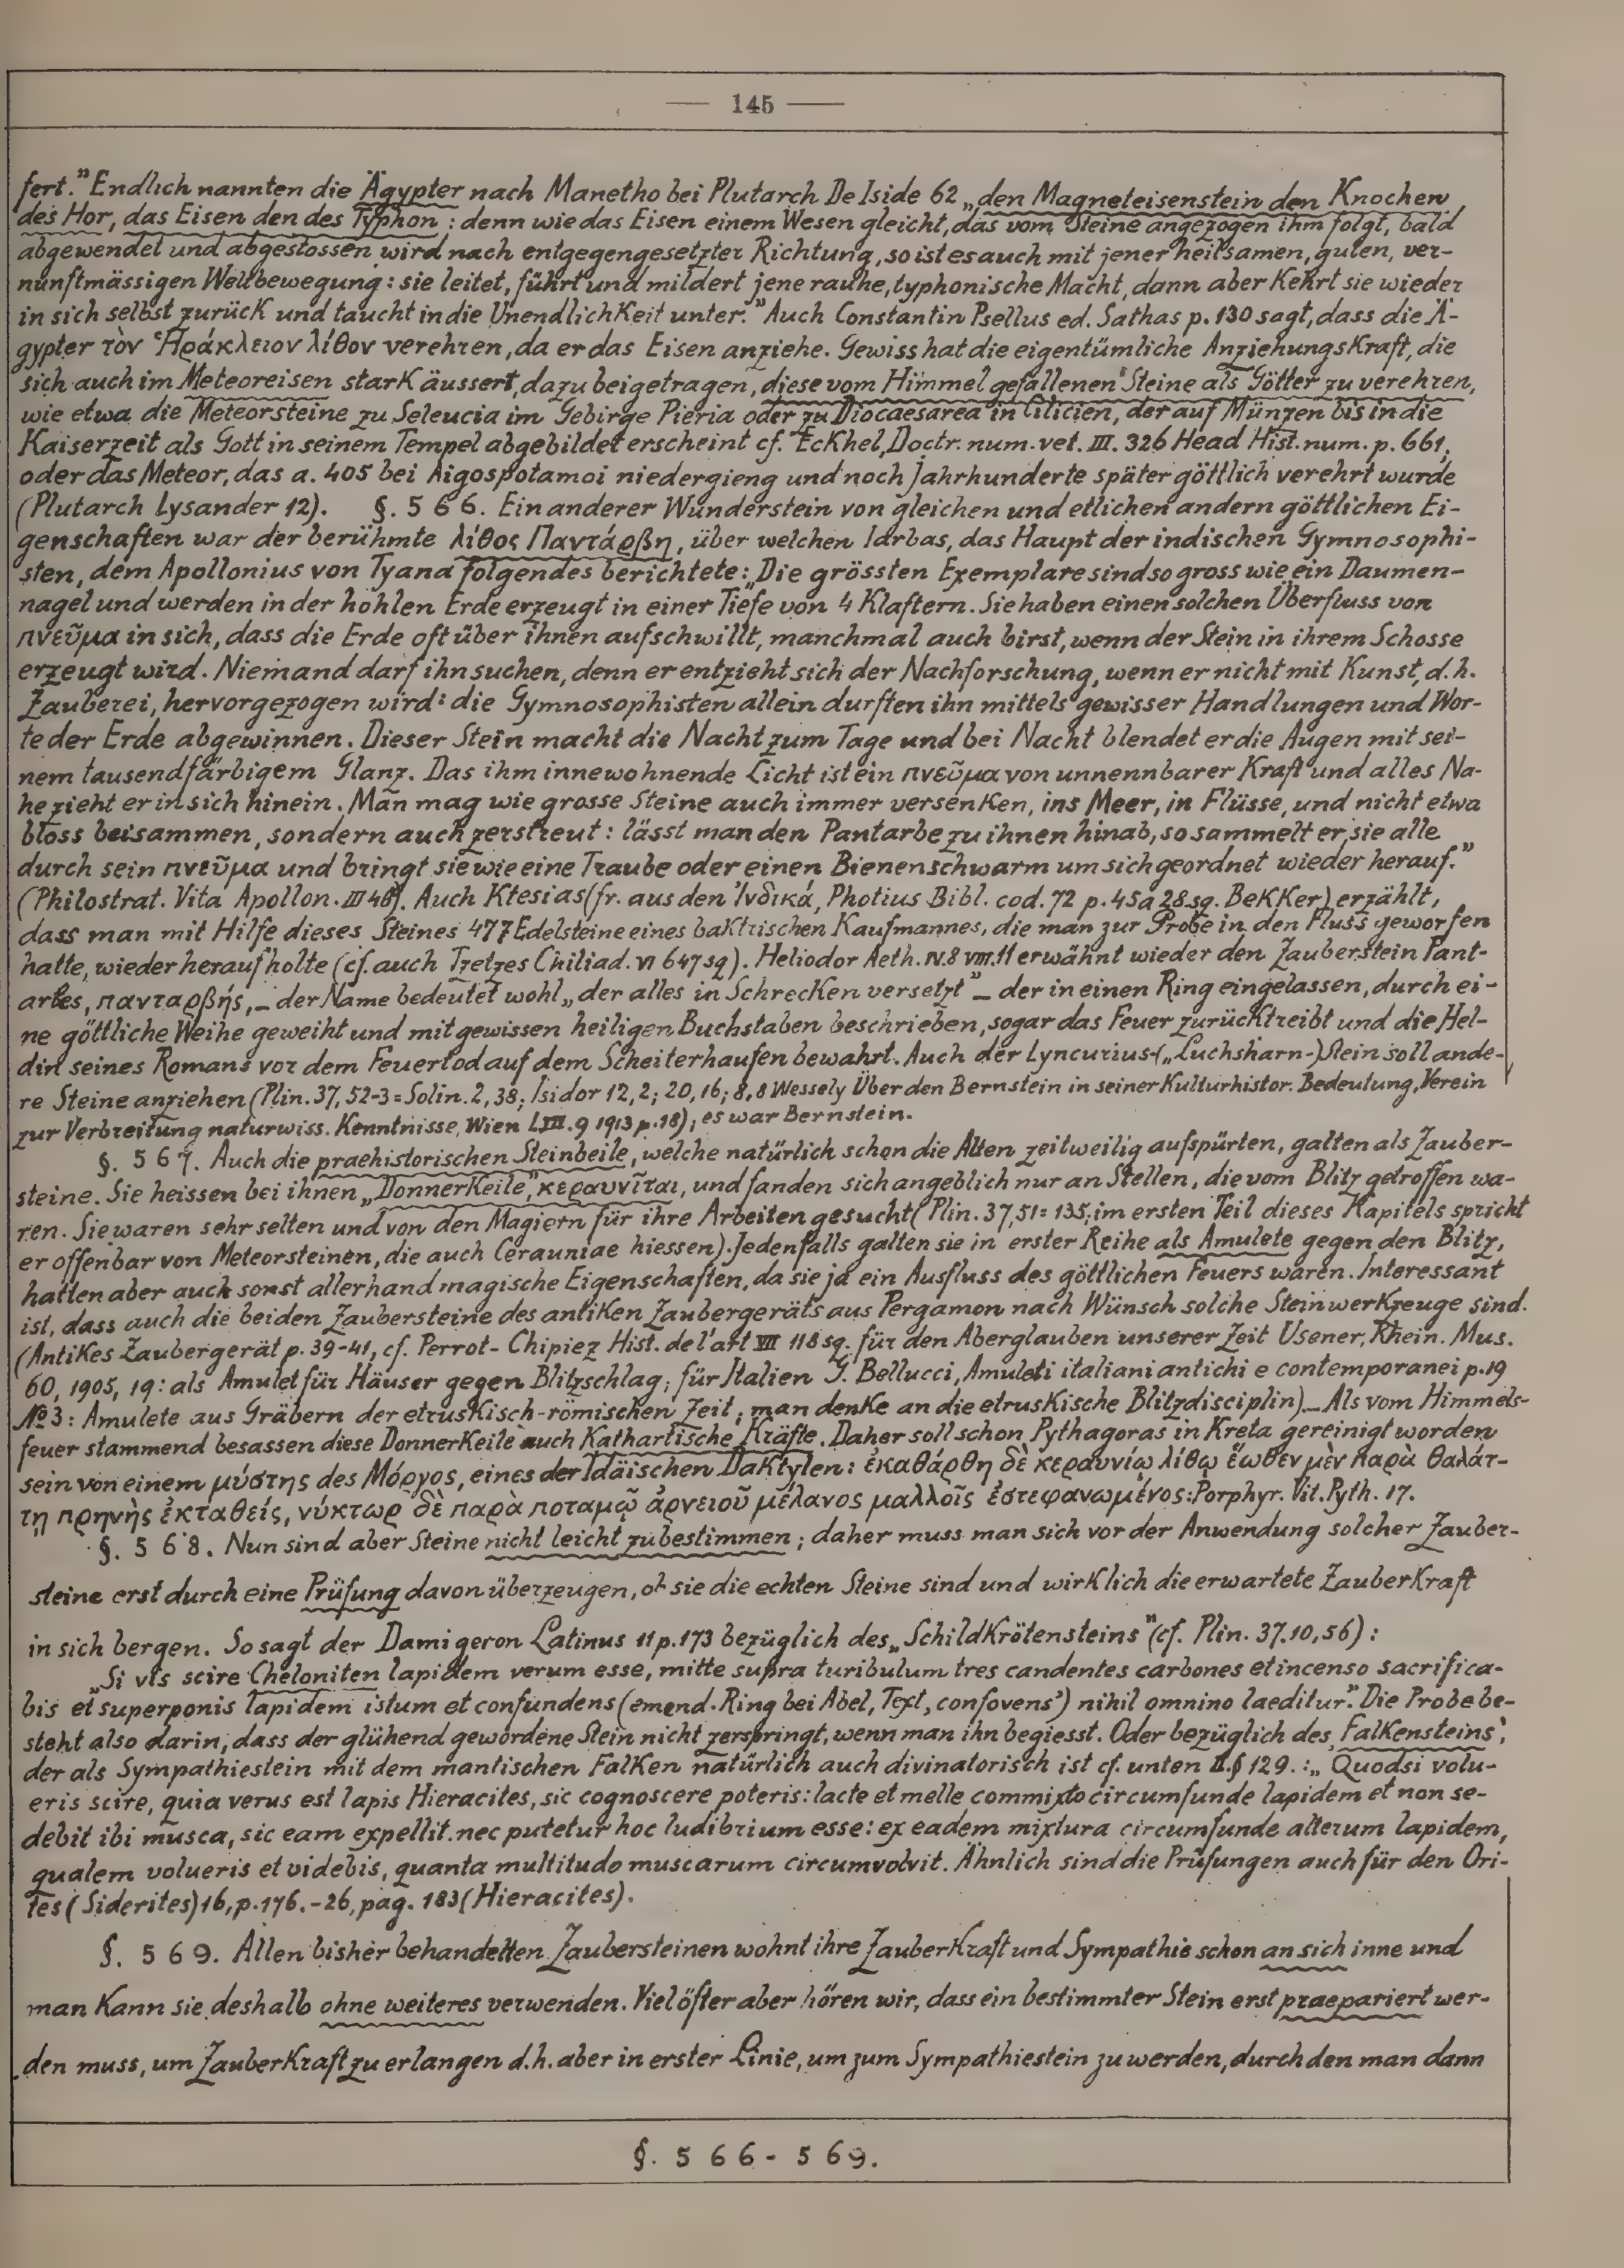 — 145 —
fert." Endlich nannten die Ägypter nach Manetho bei Plutarch De Iside 62 „den Magneteisenstein den Knochen
des Hor, das Eisen den des Typhon : denn wie das Eisen einem Wesen gleicht, das vom Steine angezogen ihm folgt, bald
abgewendet und abgestossen wird nach entgegengesetzter Richtung, so ist es auch mit jener heilsamen, guten, ver-
nunftmässigen Weltbewegung : sie leitet, führt und mildert jene rauhe, typhonische Macht, dann aber kehrt sie wieder
in sich selbst zurück und taucht in die Unendlichkeit unter." Auch Constantin Psellus ed. Sathas p. 130 sagt, dass die Ä-
gypter τὸν Ἡράκλειον λίθον verehren, da er das Eisen anziehe. Gewiss hat die eigentümliche Anziehungskraft, die
sich auch im Meteoreisen stark äussert, dazu beigetragen, diese vom Himmel gefallenen Steine als Götter zu verehren,
wie etwa die Meteorsteine zu Seleucia im Gebirge Pieria oder zu Diocaesarea in Cilicien, der auf Münzen bis in die
Kaiserzeit als Gott in seinem Tempel abgebildet erscheint cf. Eckhel, Doctr. num. vet. III. 326 Head Hist. num. p. 661,
oder das Meteor, das a. 405 bei Aigospotamoi niedergieng und noch Jahrhunderte später göttlich verehrt wurde
(Plutarch Lysander 12). §. 566. Ein anderer Wunderstein von gleichen und etlichen andern göttlichen Ei-
genschaften war der berühmte λίθος Παντάρβη, über welchen Iarbas, das Haupt der indischen Gymnosophi-
sten, dem Apollonius von Tyana folgendes berichtete: „Die grössten Exemplare sind so gross wie ein Daumen-
nagel und werden in der hohlen Erde erzeugt in einer Tiefe von 4 Klaftern. Sie haben einen solchen Überfluss von
πνεῦμα in sich, dass die Erde oft über ihnen aufschwillt, manchmal auch birst, wenn der Stein in ihrem Schosse
erzeugt wird. Niemand darf ihn suchen, denn er entzieht sich der Nachforschung, wenn er nicht mit Kunst, d.h.
Zauberei, hervorgezogen wird: die Gymnosophisten allein durften ihn mittels gewisser Handlungen und Wor-
te der Erde abgewinnen. Dieser Stein macht die Nacht zum Tage und bei Nacht blendet er die Augen mit sei-
nem tausendfärbigem Glanz. Das ihm innewohnende Licht ist ein πνεῦμα von unnennbarer Kraft und alles Na-
he zieht er in sich hinein. Man mag wie grosse Steine auch immer versenken, ins Meer, in Flüsse, und nicht etwa
bloss beisammen, sondern auch zerstreut : lässt man den Pantarbe zu ihnen hinab, so sammelt er sie alle
durch sein πνεῦμα und bringt sie wie eine Traube oder einen Bienenschwarm um sich geordnet wieder herauf."
(Philostrat. Vita Apollon. III 46). Auch Ktesias (fr. aus den Ἰνδικά, Photius Bibl. cod. 72 p. 45a 28 sg. Bekker) erzählt,
dass man mit Hilfe dieses Steines 477 Edelsteine eines baktrischen Kaufmannes, die man zur Probe in den Fluss geworfen
hatte, wieder heraufholte (cf. auch Tzetzes Chiliad. VI 647 sq). Heliodor Aeth. IV.8 VIII.11 erwähnt wieder den Zauberstein Pant-
arbes, πανταρβής, – der Name bedeutet wohl „der alles in Schrecken versetzt" – der in einen Ring eingelassen, durch ei-
ne göttliche Weihe geweiht und mit gewissen heiligen Buchstaben beschrieben, sogar das Feuer zurücktreibt und die Hel-
din seines Romans vor dem Feuertod auf dem Scheiterhaufen bewahrt. Auch der Lyncurius-(„Luchsharn-)Stein soll ande-
re Steine anziehen (Plin. 37, 52-3 = Solin. 2, 38; Isidor 12, 2; 20, 16; 8, 8 Wessely Über den Bernstein in seiner Kulturhistor. Bedeutung, Verein
zur Verbreitung naturwiss. Kenntnisse, Wien LIII. 9 1913 p. 18); es war Bernstein.
§. 567. Auch die praehistorischen Steinbeile, welche natürlich schon die Alten zeitweilig aufspürten, galten als Zauber-
steine. Sie heissen bei ihnen „Donnerkeile," κεραυνῖται, und fanden sich angeblich nur an Stellen, die vom Blitz getroffen wa-
ren. Sie waren sehr selten und von den Magiern für ihre Arbeiten gesucht (Plin. 37, 51 = 135; im ersten Teil dieses Kapitels spricht
er offenbar von Meteorsteinen, die auch Cerauniae hiessen). Jedenfalls galten sie in erster Reihe als Amulete gegen den Blitz,
hatten aber auch sonst allerhand magische Eigenschaften, da sie ja ein Ausfluss des göttlichen Feuers waren. Interessant
ist, dass auch die beiden Zaubersteine des antiken Zaubergeräts aus Pergamon nach Wünsch solche Steinwerkzeuge sind.
(Antikes Zaubergerät p. 39-41, cf. Perrot-Chipiez Hist. de l'art VII 118 sq. für den Aberglauben unserer Zeit Usener, Rhein. Mus.
60, 1905, 19 : als Amulet für Häuser gegen Blitzschlag; für Italien G. Bellucci, Amuleti italiani antichi e contemporanei p. 19
No 3 : Amulete aus Gräbern der etruskisch-römischen Zeit; man denke an die etruskische Blitzdisciplin) – Als vom Himmels-
feuer stammend besassen diese Donnerkeile auch Kathartische Kräfte. Daher soll schon Pythagoras in Kreta gereinigt worden
sein von einem μύστης des Μόργος, eines der Idäischen Daktylen: ἐκαθάρθη δὲ κεραυνίῳ λίθῳ ἕωθεν μὲν παρὰ θαλάτ-
τῃ πρηνὴς ἐκταθείς, νύκτωρ δὲ παρὰ ποταμῷ ἀρνειοῦ μέλανος μαλλοῖς ἐστεφανωμένος: Porphyr. Vit. Pyth. 17.
§. 568. Nun sind aber Steine nicht leicht zu bestimmen ; daher muss man sich vor der Anwendung solcher Zauber-
steine erst durch eine Prüfung davon überzeugen, ob sie die echten Steine sind und wirklich die erwartete Zauberkraft
in sich bergen. So sagt der Damigeron Latinus 11 p. 173 bezüglich des „Schildkrötensteins" (cf. Plin. 37. 10, 56) :
„Si vis scire Cheloniten lapidem verum esse, mitte supra turibulum tres candentes carbones et incenso sacrifica-
bis et superponis lapidem istum et confundens (emend. Ring bei Abel, Text, confovens') nihil omnino laeditur." Die Probe be-
steht also darin, dass der glühend gewordene Stein nicht zerspringt, wenn man ihn begiesst. Oder bezüglich des ‚Falkensteins',
der als Sympathiestein mit dem mantischen Falken natürlich auch divinatorisch ist cf. unten II. § 129. : „ Quodsi volu-
eris scire, quia verus est lapis Hieracites, sic cognoscere poteris : lacte et melle commixto circumfunde lapidem et non se-
debit ibi musca, sic eam expellit. nec putetur hoc ludibrium esse : ex eadem mixtura circumfunde alterum lapidem,
qualem volueris et videbis, quanta multitudo muscarum circumvolvit. Ähnlich sind die Prüfungen auch für den Ori-
tes (Siderites) 16, p. 176. - 26, pag. 183 (Hieracites).
§. 569. Allen bisher behandelten Zaubersteinen wohnt ihre Zauberkraft und Sympathie schon an sich inne und
man kann sie deshalb ohne weiteres verwenden. Viel öfter aber hören wir, dass ein bestimmter Stein erst praepariert wer-
den muss, um Zauberkraft zu erlangen d.h. aber in erster Linie, um zum Sympathiestein zu werden, durch den man dann
§. 566 - 569.